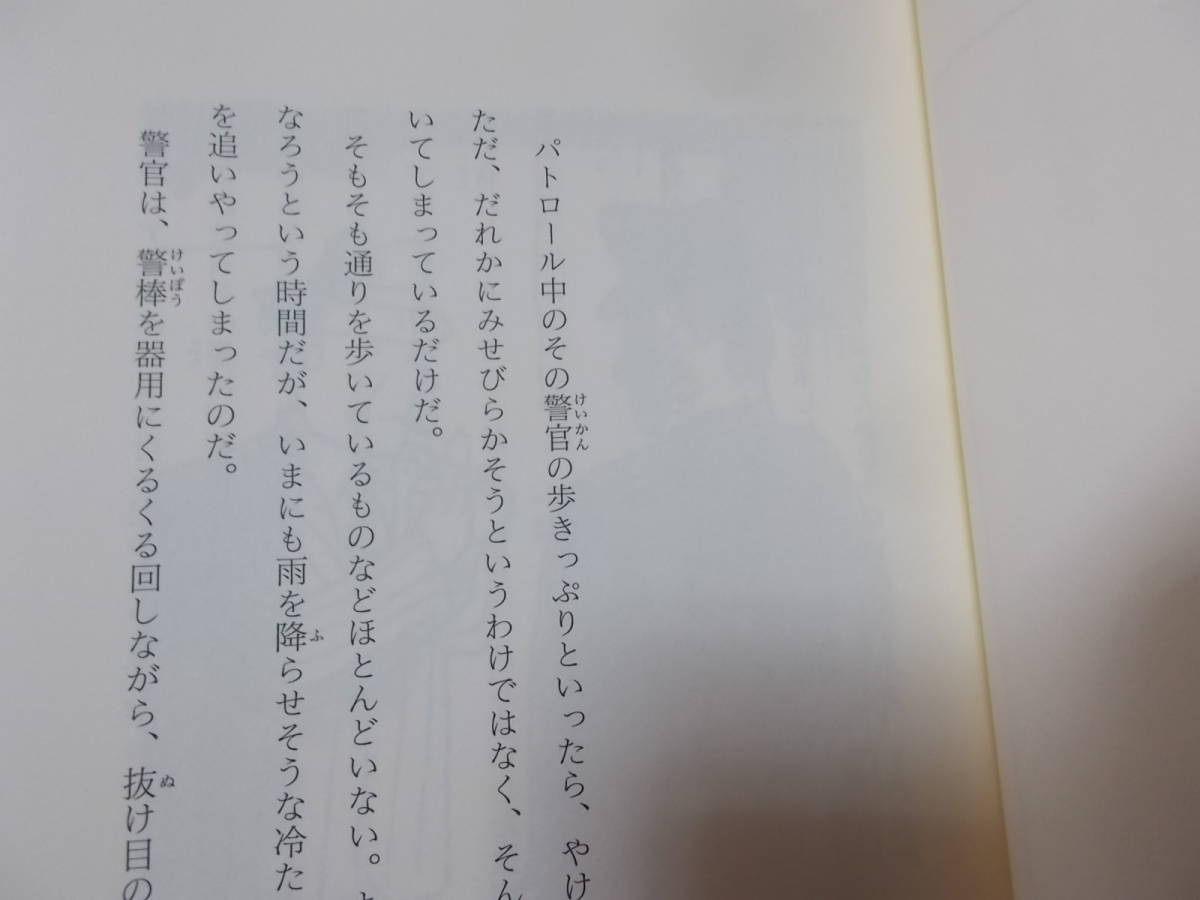 パトロール中のその警官の歩きっぷりといったら、やけ
ただ、だれかにみせびらかそうというわけではなく、そん
いてしまっているだけだ。
そもそも通りを歩いているものなどほとんどいない。
なろうという時間だが、いまにも雨を降らせそうな冷た
を追いやってしまったのだ。
警官は、警棒を器用にくるくる回しながら、抜け目の